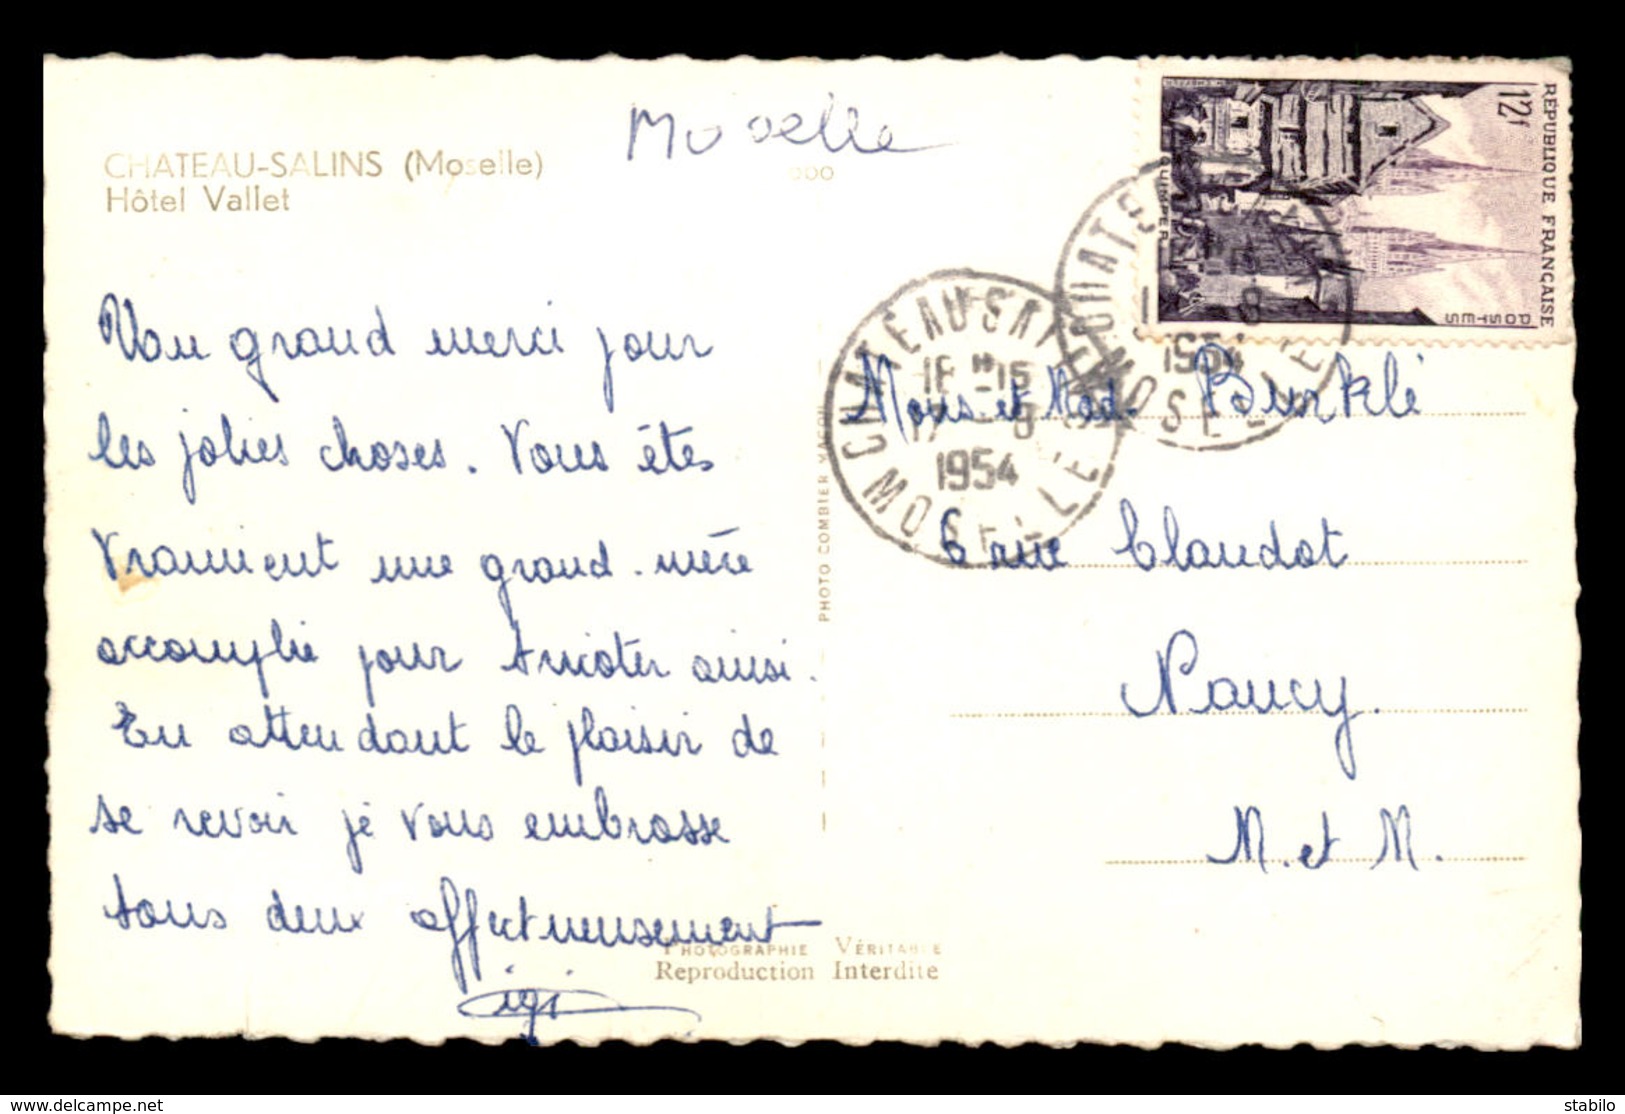 Moselle
CHATEAU-SALINS (Moselle)
Hôtel Vallet
Un grand merci pour
les jolies choses. Vous êtes
vraiment une grand-mère
accomplie pour tricoter ainsi.
En attendant le plaisir de
se revoir je vous embrasse
tous deux affectueusement
igi
PHOTO COMBIER MACON
PHOTOGRAPHIE VÉRITABLE
Reproduction Interdite
RÉPUBLIQUE FRANÇAISE
POSTES
12f
QUIMPER
CHATEAU SALINS
18 H 15
17 - 8
1954
MOSELLE
1954
MOSELLE
Mons et Mad. Burklé
6 rue Claudot
Nancy.
M. et M.
www.delcampe.net
stabilo